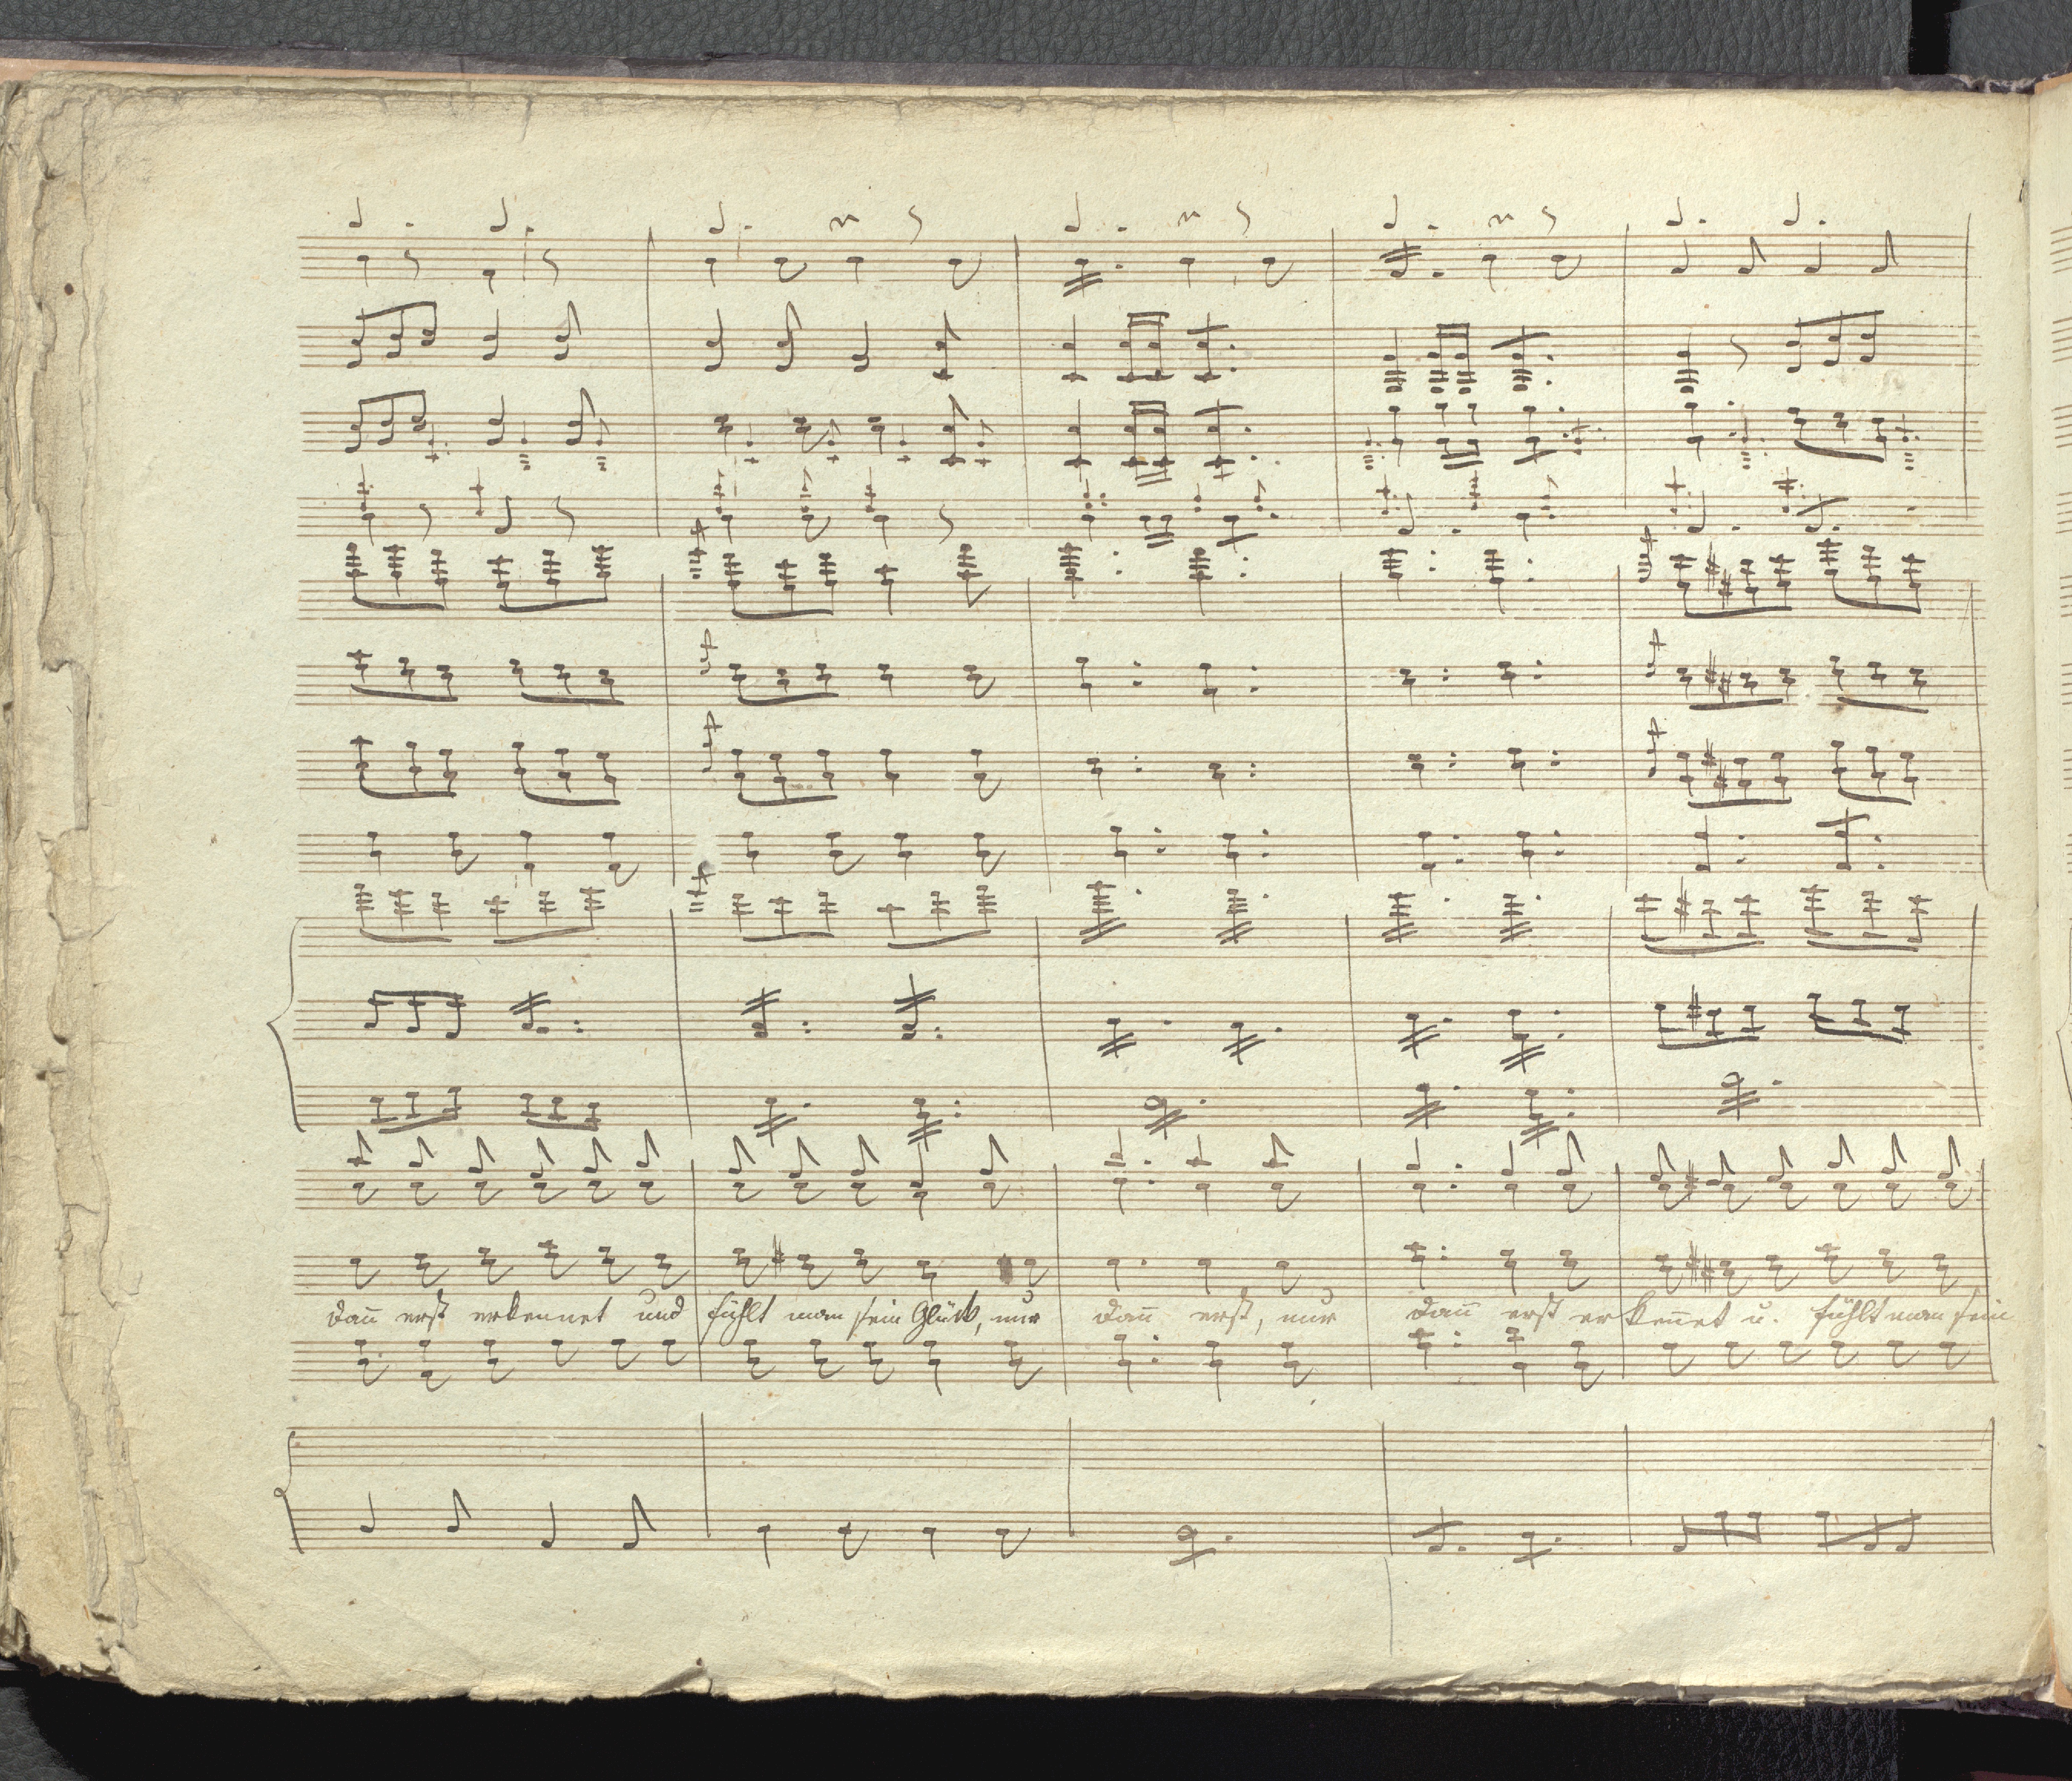 dan̄ erst erkennet und fühlt man sein Glück, nur dan̄ erst, nur dan̄ erst erken̄et u. fühlt man sein